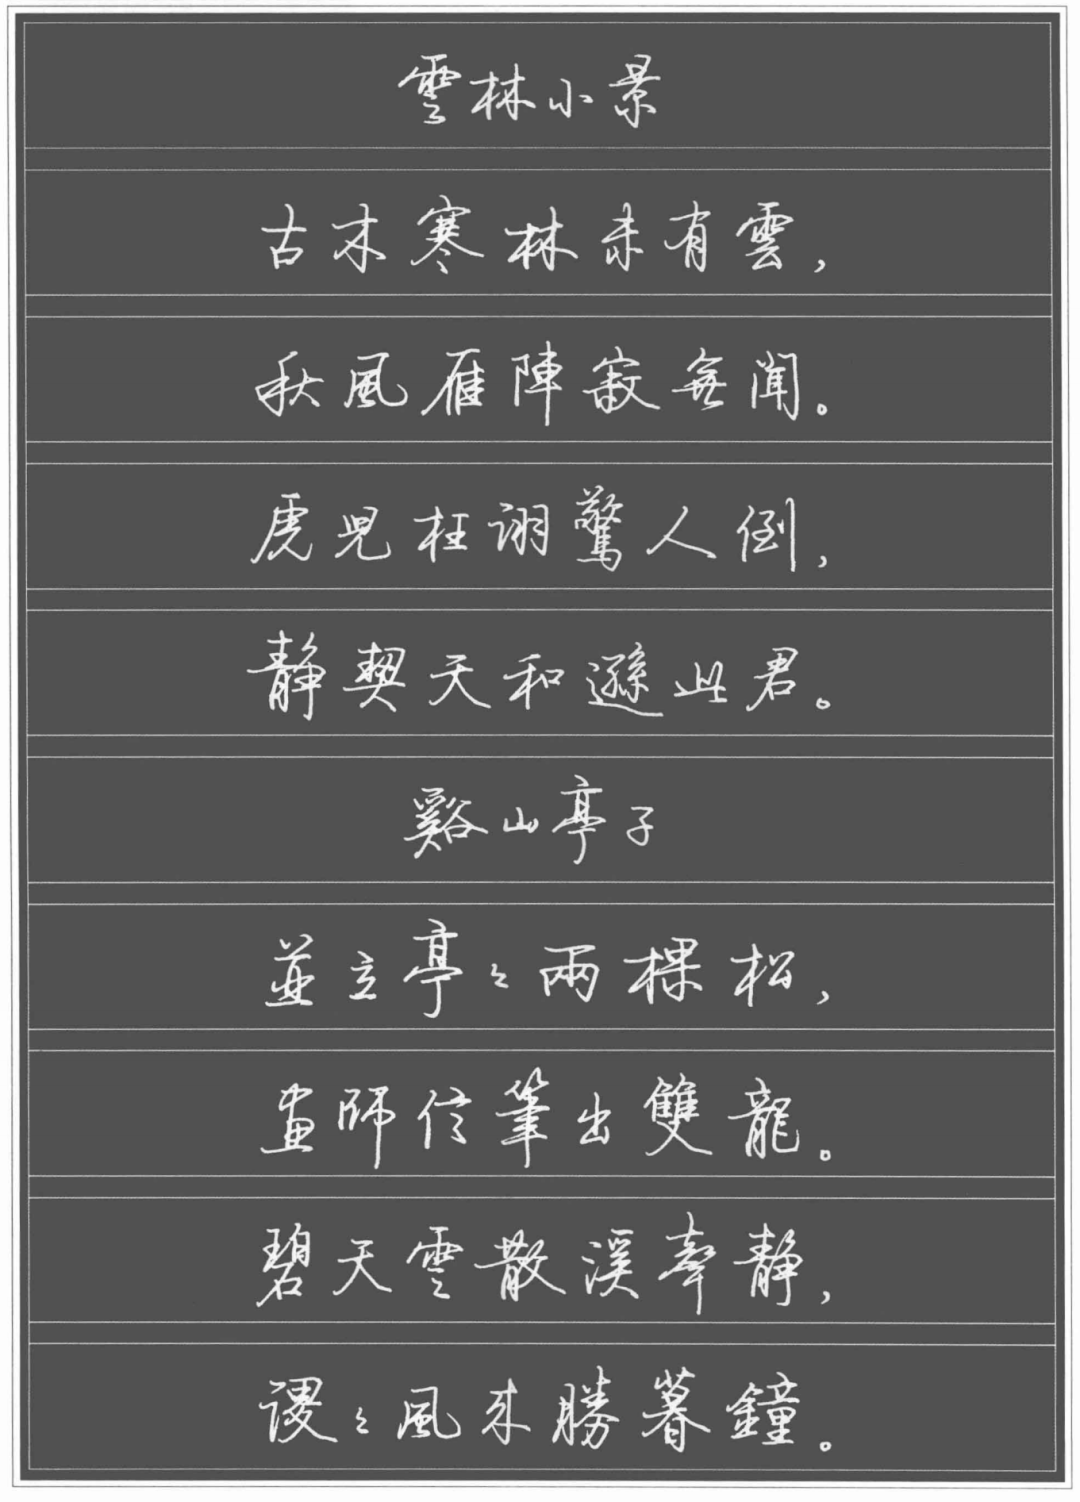 雲林小景
古木寒林未有雲，
秋風雁陣寂無聞。
虎兒枉詡驚人倒，
靜契天和遜此君。
谿山亭子
並立亭々兩棵松，
畫師信筆出雙龍。
碧天雲散溪聲靜，
謖々風來勝暮鐘。